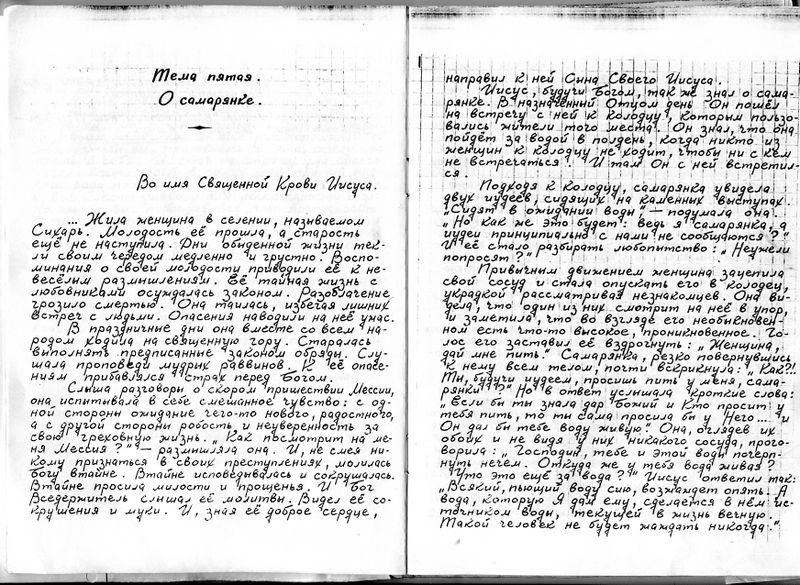 Тема пятая.
О самарянке.
Во имя Священной Крови Иисуса.
... Жила женщина в селении, называемом
Сихарь. Молодость её прошла, а старость
ещё не наступила. Дни обыденной жизни тек-
ли своим чередом медленно и грустно. Воспо-
минания о своей молодости приводили её к не-
весёлым размишлениям. Её тайная жизнь с
любовниками осуждалась законом. Разоблачение
грозило смертью. Она таилась, избегая лишних
встреч с людьми. Опасения наводили на неё ужас.
В праздничные дни она вместе со всем на-
родом ходила на священную гору. Старалась
выполнять предписанные законом обряды. Слу-
шала проповеди мудрых раввинов. К её опасе-
ниям прибавлялся страх перед Богом.
Слыша разговоры о скором пришествии Мессии,
она испытывала в себе смешанное чувство: с од-
ной стороны ожидание чего-то нового, радостного,
а с другой стороны робость и неуверенность за
свою греховную жизнь. „Как посмотрит на ме-
ня Мессия?" — размишляла она. И, не смея ни-
кому признаться в своих преступлениях, молилась
Богу втайне. Втайне исповедывалась и сокрушалась.
Втайне просила милости и прощенья. И Бог
Вседержитель слышал её молитвы. Видел её со-
крушения и муки. И, зная её доброе сердце,
направил к ней Сына Своего Иисуса.
Иисус, будучи Богом, так же знал о сама-
рянке. В назначенный Отцом день Он пошёл
на встречу с ней к колодцу, которым пользо-
вались жители того места. Он знал, что она
пойдёт за водой в полдень, когда никто из
женщин к колодцу не ходит, чтобы ни с кем
не встречаться. И там Он с ней встретил-
ся.
Подходя к колодцу, самарянка увидела
двух иудеев, сидящих на каменных выступах.
„Сидят в ожидании воды" — подумала она.
„Но как же это будет: ведь я самарянка, а
иудеи принципиально с нами не сообщаются?"
И её стало разбирать любопытство: „Неужели
попросят?"
Привычным движением женщина зацепила
свой сосуд и стала опускать его в колодец,
украдкой рассматривая незнакомцев. Она ви-
дела, что один из них смотрит на неё в упор,
и заметила, что во взгляде его необыкновен-
ном есть что-то высокое, проникновенное. Го-
лос его заставил её вздрогнуть: „Женщина,
дай мне пить." Самарянка, резко повернувшись
к нему всем телом, почти вскрикнула: „Как?!
Ты, будучи иудеем, просишь пить у меня, сама-
рянки?" Но в ответ услышала кроткие слова:
„Если бы ты знала дар Божий и Кто просит у
тебя пить, то ты сама просила бы у Него... и
Он дал бы тебе воду живую". Она, оглядев их
обоих и не видя у них никакого сосуда, прого-
ворила: „Господин, тебе и этой воды почерп-
нуть нечем. Откуда же у тебя вода живая?
Что это ещё за вода?" Иисус ответил так:
„Всякий, пьющий воду сию, возжаждет опять. А
вода, которую Я дам ему, сделается в нём ис-
точником воды, текущей в жизнь вечную.
Такой человек не будет жаждать никогда."